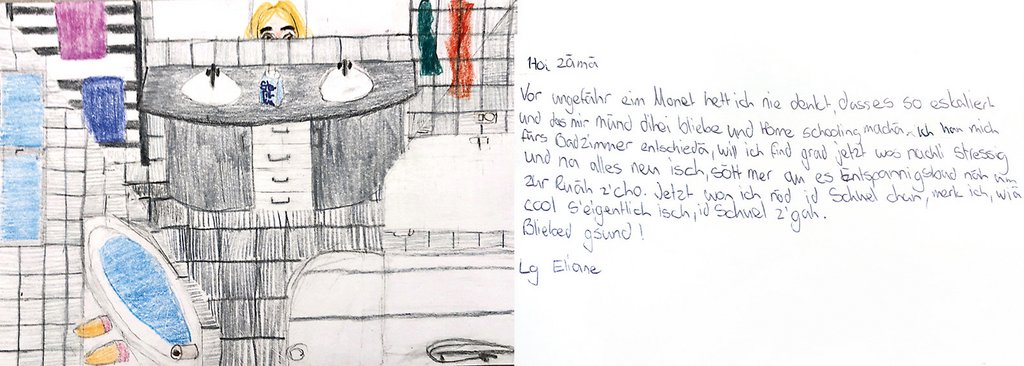 Hoi zämä
Vor ungefähr eim Monet hett ich nie denkt, dass es so eskaliert
und das mir münd dihei bliebe und Home schooling machä. Ich han mich
fürs Badzimmer entschiedä, will ich find grad jetzt wos nöchli stressig
und na alles neu isch, sött mer au es Entspannigsbad näh um
zur Ruäh z'cho. Jetzt won ich nöd id Schuel chan, merk ich, wiä
cool s'eigentlich isch, id Schuel z'gah.
Bliebed gsund!
Lg Eliane